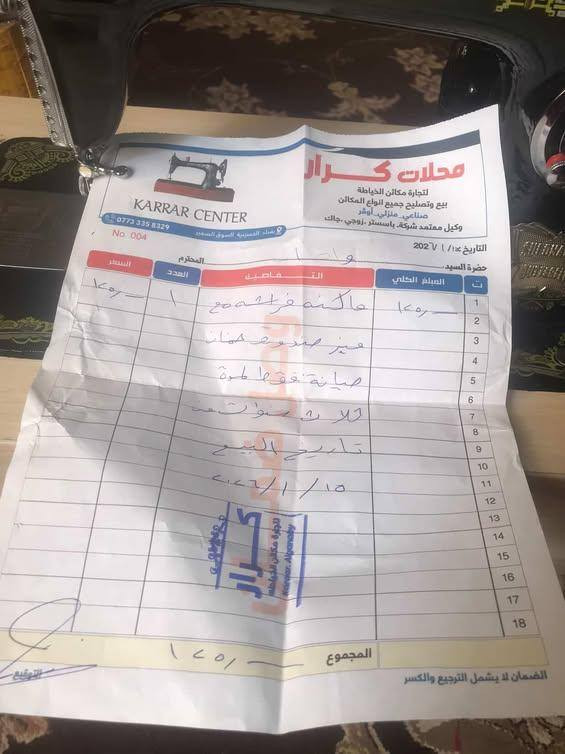 محلات كرار
لتجارة مكائن الخياطة
بيع وتصليح جميع انواع المكائن
صناعي منزلي أوفر
وكيل معتمد شركة. ياسستر .زوجي .جاك
KARRAR CENTER
0773 335 8329
بغداد الحسينية السوق الصغير
No. 004
التاريخ ١٥/ ١ /2026
حضرة السيد
المحترم
ت المبلغ الكلي التفاصيل العدد السعر
1 ١٢٥٫٠٠٠ ماكنه فراشه مع ١ ١٢٥٫٠٠٠
2
3 ميز صندوق ضمان
4
5 صيانة فقط لمدة
6
7 ثلاث سنوات من
8
9 تاريخ البيع
10
11 ٢٠٢٦/١/١٥
12
13
14
15
16
17
18
كرار
لتجارة مكائن الخياطة
المجموع ١٢٥٫٠٠٠
الضمان لا يشمل الترجيع والكسر
التوقيع